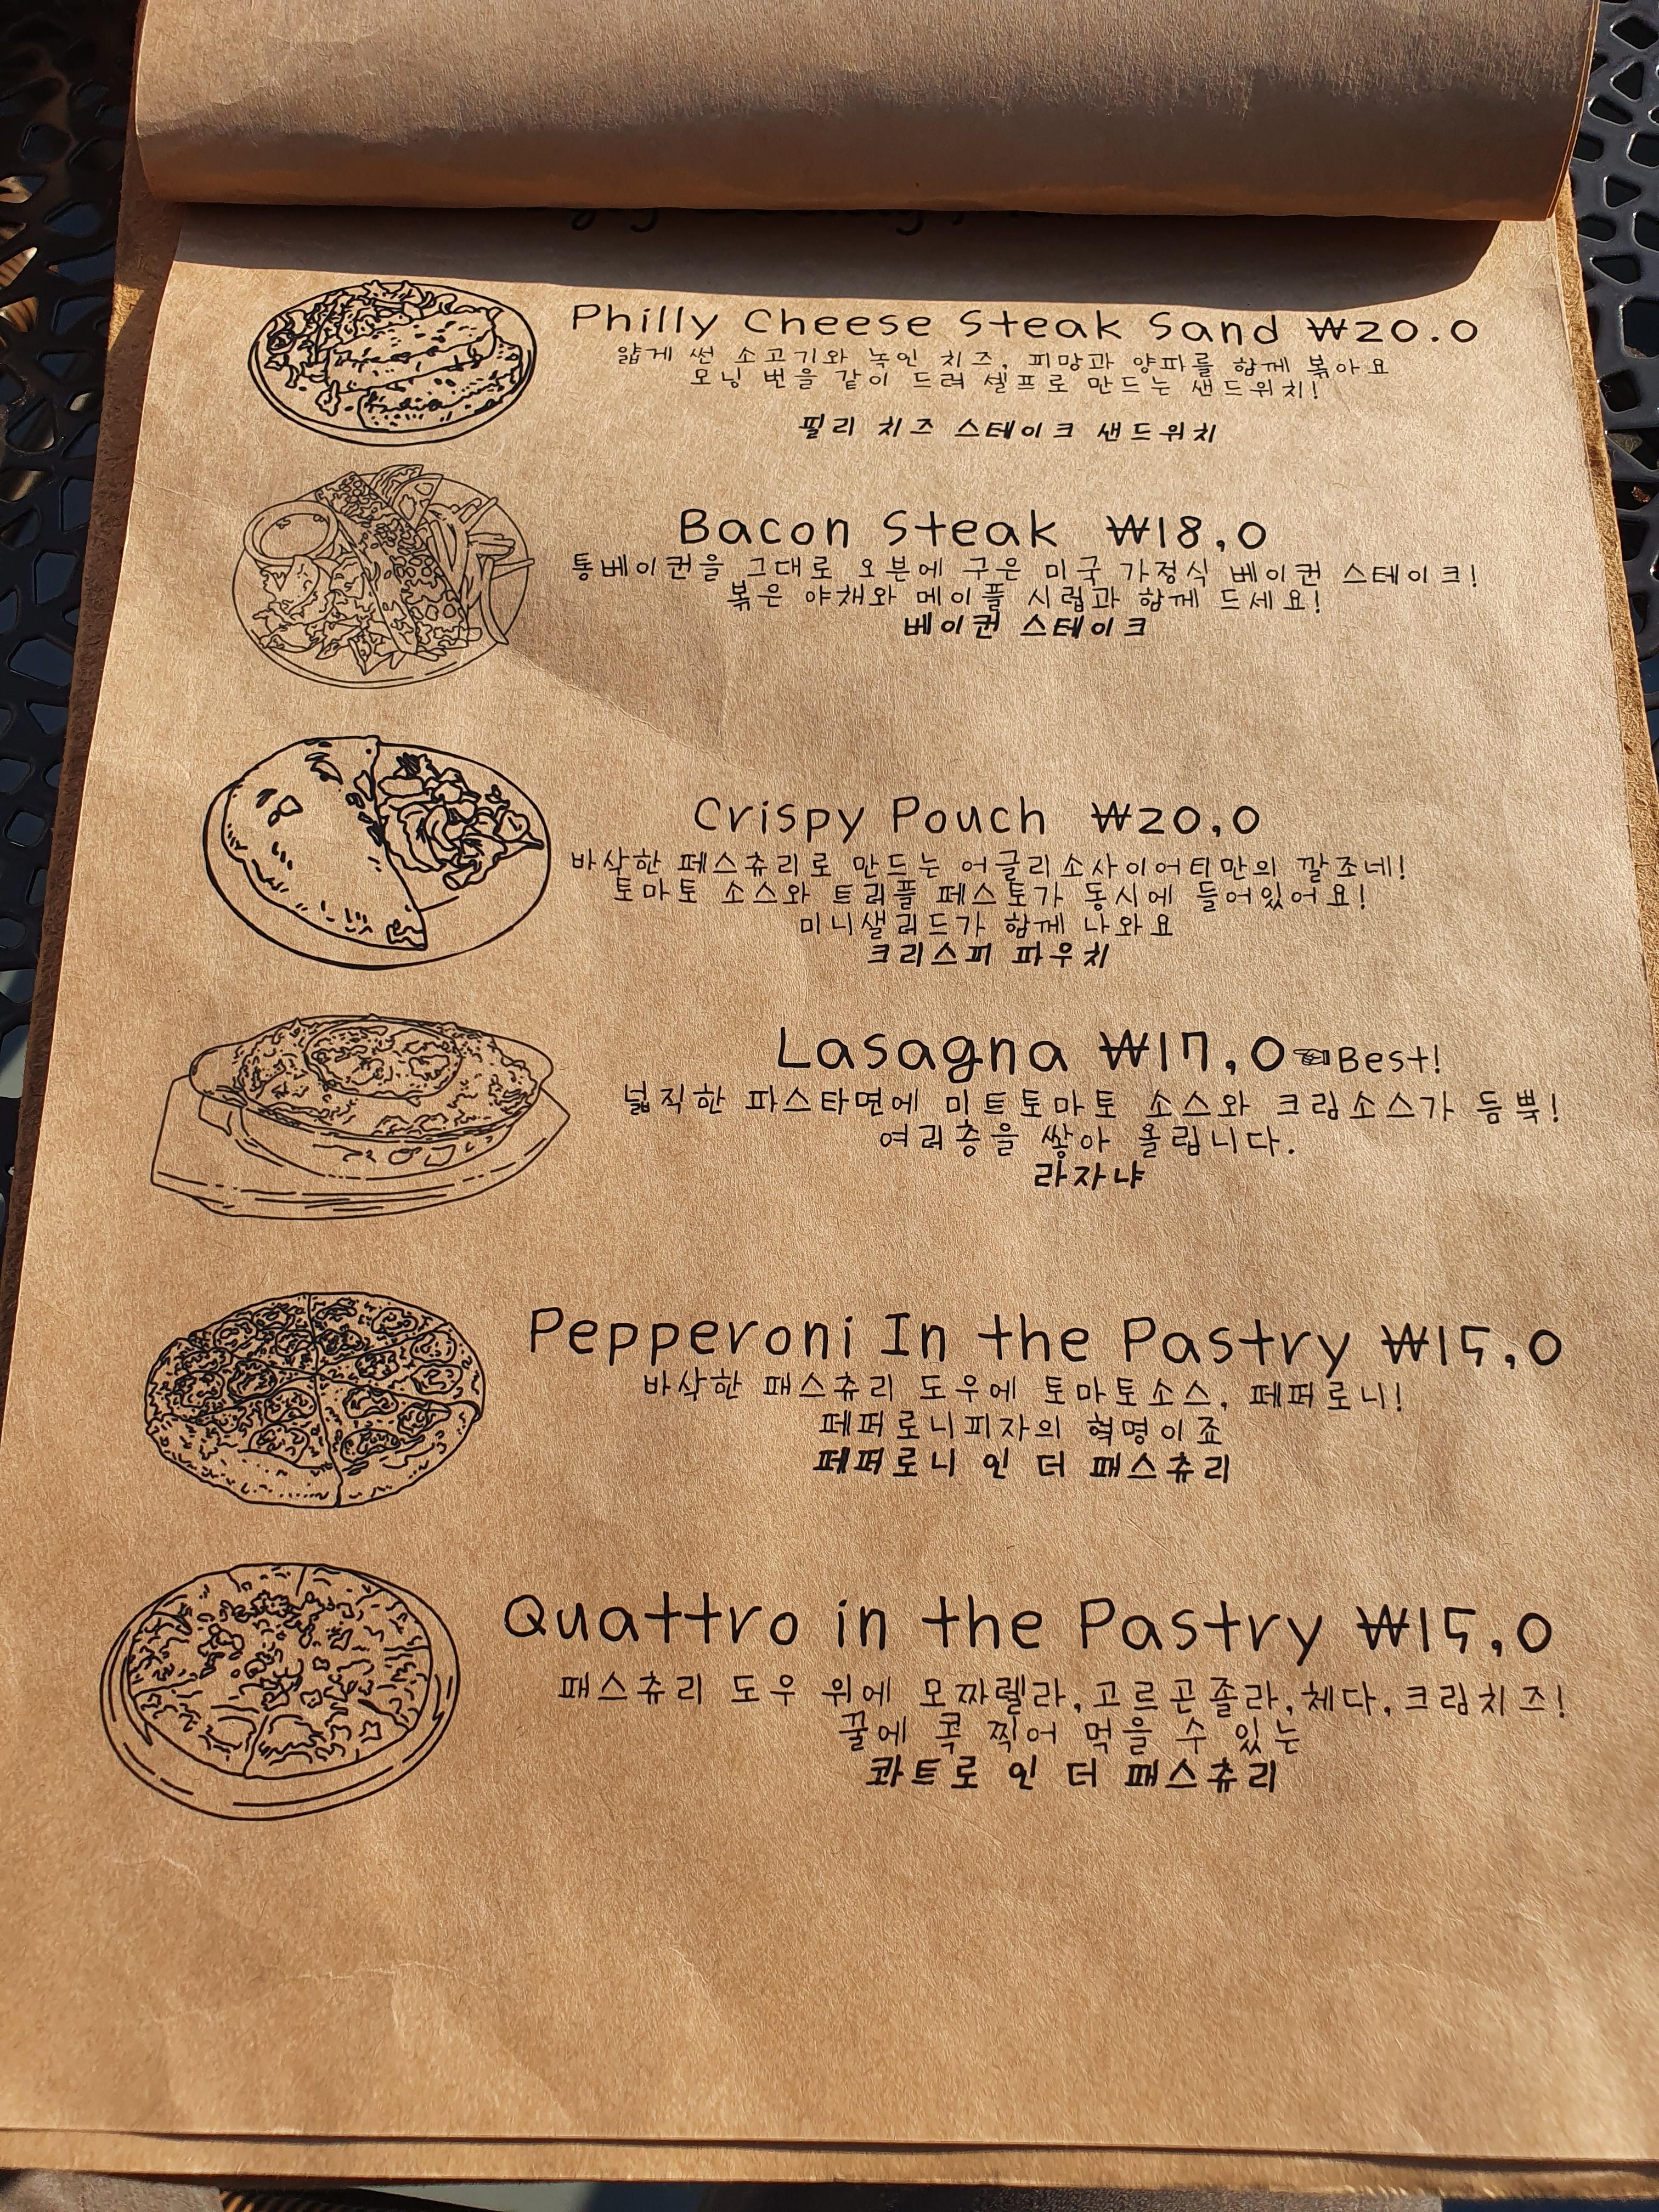 Philly Cheese Steak Sand ₩20.0
얇게 썬 소고기와 녹인 치즈, 피망과 양파를 함께 볶아요
모닝 번을 같이 드려 셀프로 만드는 샌드위치!
필리 치즈 스테이크 샌드위치
Bacon Steak ₩18,0
통베이컨을 그대로 오븐에 구은 미국 가정식 베이컨 스테이크!
볶은 야채와 메이플 시럽과 함께 드세요!
베이컨 스테이크
Crispy Pouch ₩20,0
바삭한 페스츄리로 만드는 어글리소사이어티만의 깔조네!
토마토 소스와 트러플 페스토가 동시에 들어있어요!
미니샐러드가 함께 나와요
크리스피 파우치
Lasagna ₩17,0☜Best!
넓직한 파스타면에 미트토마토 소스와 크림소스가 듬뿍!
여러층을 쌓아 올립니다.
라자냐
Pepperoni In the Pastry ₩15,0
바삭한 패스츄리 도우에 토마토소스, 페퍼로니!
페퍼로니피자의 혁명이죠
페퍼로니 인 더 패스츄리
Quattro in the Pastry ₩15,0
패스츄리 도우 위에 모짜렐라,고르곤졸라,체다,크림치즈!
꿀에 콕 찍어 먹을 수 있는
콰트로 인 더 패스츄리